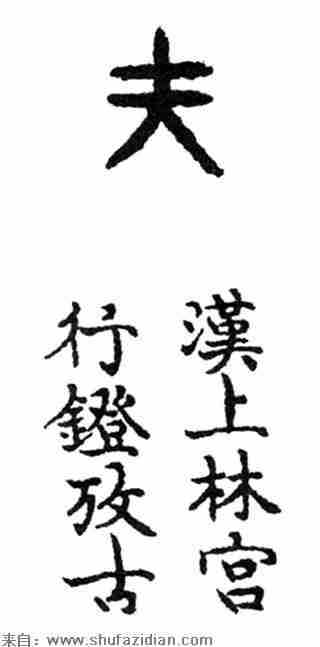 夫
漢上林宮
行鐙攷古
来自：www.shufazidian.com